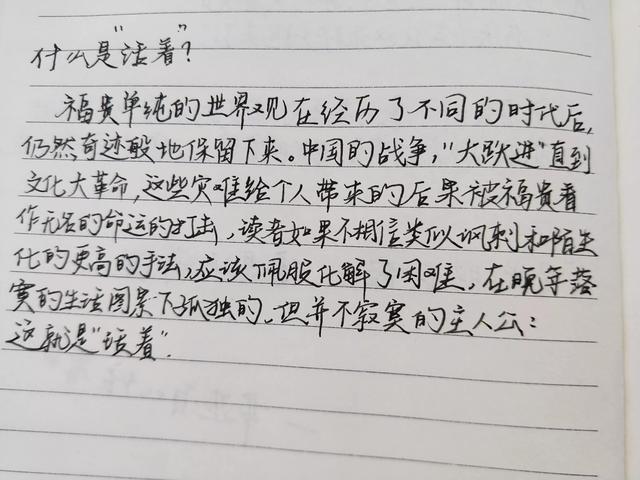 什么是"活着"?
福贵单纯的世界观在经历了不同的时代后,
仍然奇迹般地保留下来。中国的战争,"大跃进"直到
文化大革命,这些灾难给个人带来的后果被福贵看
作无名的命运的打击,读者如果不相信类似讽刺和陌生
化的更高的手法,应该佩服化解了困难,在晚年落
寞的生活图景下孤独的,但并不寂寞的主人公:
这就是"活着".